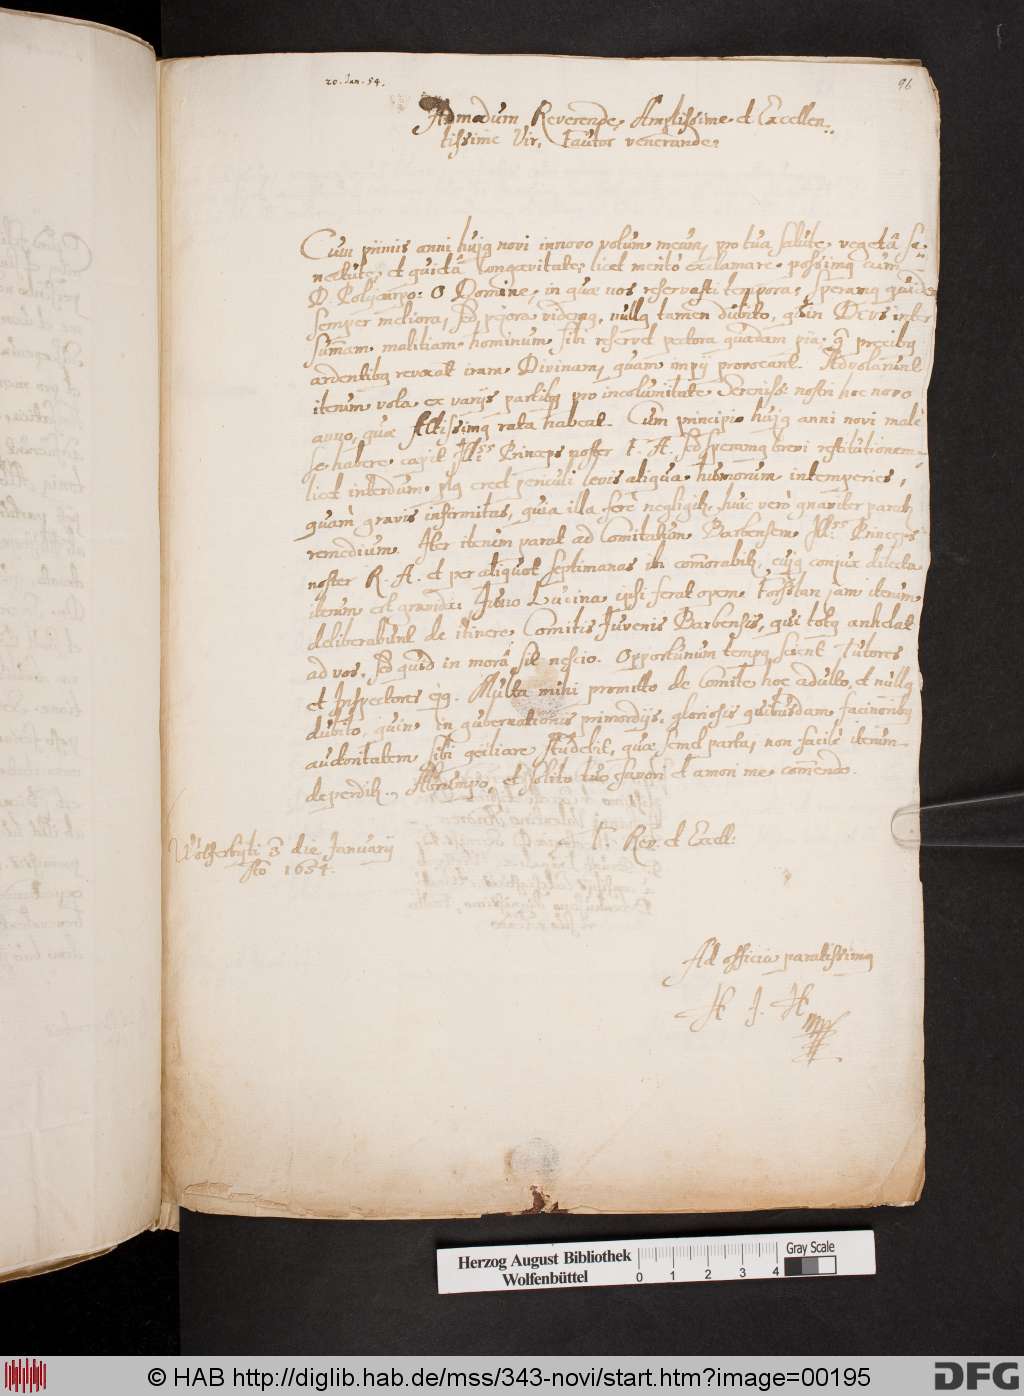 20. Jan. 54.
96
Admodum Reverende, Amplissime et Excellen-
tissime Vir, Fautor venerande.
Cum primis anni hujq novi innovo votum meum, pro tua salute, vegetâ se-
nectute, et quietâ longaevitate, licet meritò exclamare possimq cum
D. Polycarpo: O Domine, in quae nos reservasti tempora, Speramq quidē
semper meliora, sed pejora videmq, nullq tamen dubito, quin Devs inter
sum̄am malitiam hominum sibi reservet pectora quaedam pia, q precibq
ardentibq revocat iram Divinam, quam impij provocant. Advolarunt
iterum vota ex varijs partibq pro incolumitate Sereniss: nostri hoc novo
anno, quae Altissimq rata habeat. Cum principio hujq anni novi malè
se habere cœpit Illss: Princeps noster F. A. sed speramq brevi restitutionem,
licet interdum plq creet periculi levis aliqua humorum intemperies,
quam gravis infirmitas, quia illa ferè negligitr, huic verò gnaviter paratr
remedium. Iter iterum parat ad Comitatum Barbensem Illss: Princeps
noster R. A. et per aliquot septimanas ibi com̄orabitr, cujq conjux dilecta
iterum est gravida: Juno Lucina ipsi ferat opem. Forsitan jam iterum
deliberabunt de itinere Comitis Juvenis Barbensis, qui totq anhelat
ad vos, sed quid in morâ sit nescio. Opportunum tempq scient Tutores
et Inspectores ejq. Multa mihi promitto de Comite hoc adulto, et nullq
dubito, quin in gubernationis primordijs, gloriosis quibusdam facinoribq
auctoritatem sibi cōciliare studebit, quae semel parta, non facilè iterum
deperditr. Abrumpo, et solito tuo favori et amori me com̄endo.
T. Rev. et Excell:
Wolferbyti 3 die Januarij
Ao 1654.
Ad officia paratissimq
H J. H
mp
Herzog August Bibliothek
Wolfenbüttel
0 1 2 3 4
Gray Scale
© HAB http://diglib.hab.de/mss/343-novi/start.htm?image=00195
DFG